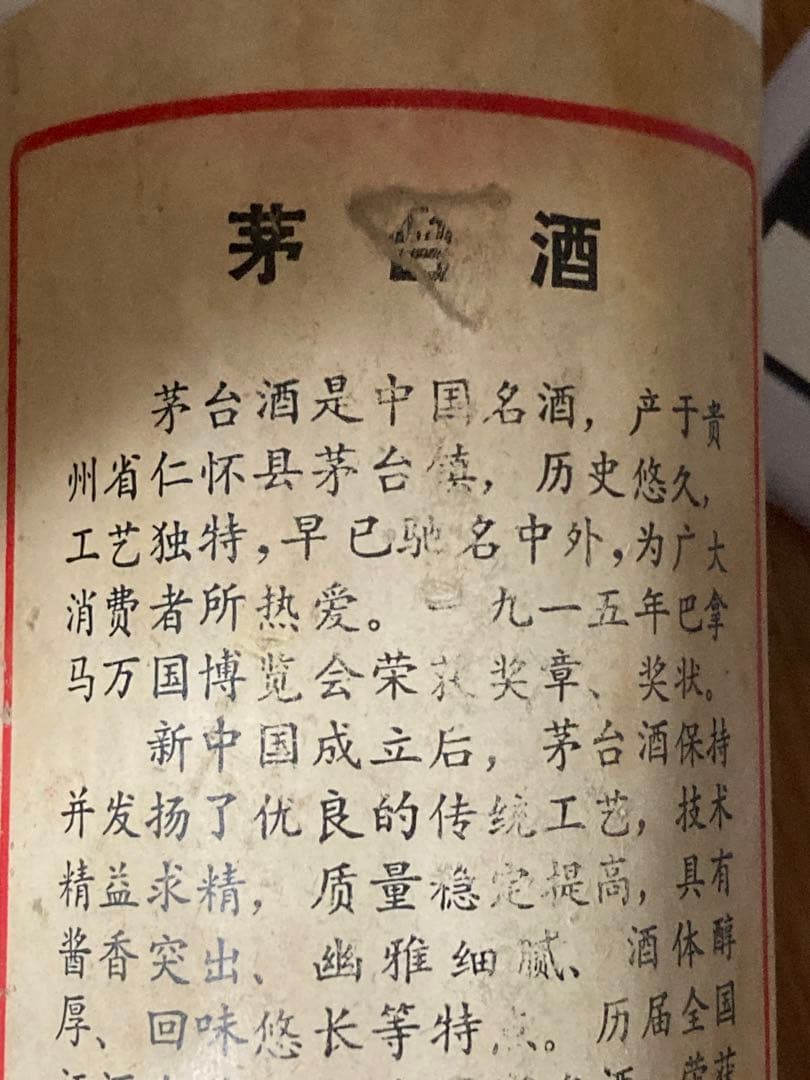 茅台酒
茅台酒是中国名酒，产于贵
州省仁怀县茅台镇，历史悠久，
工艺独特，早已驰名中外，为广大
消费者所热爱。一九一五年巴拿
马万国博览会荣获奖章、奖状。
新中国成立后，茅台酒保持
并发扬了优良的传统工艺，技术
精益求精，质量稳定提高，具有
酱香突出、幽雅细腻、酒体醇
厚、回味悠长等特点。历届全国